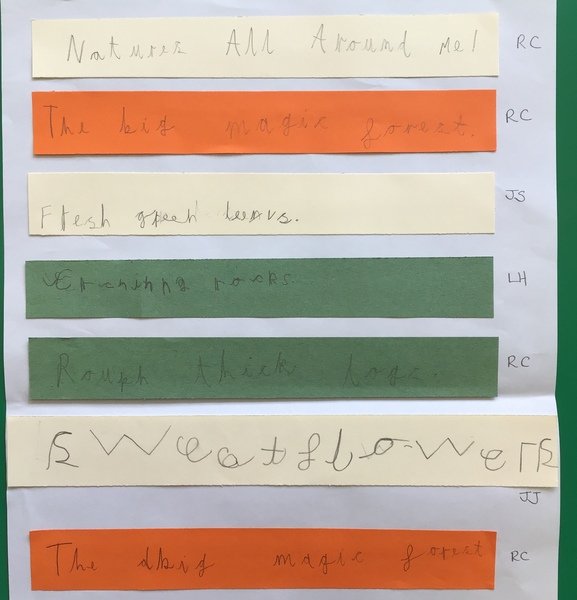 Natures All Around Me! RC
The big magic forest. RC
Fresh green leavs. JS
rocks. LH
Rough thick logs. RC
sweatflowers
JJ
The dbig magic forest RC